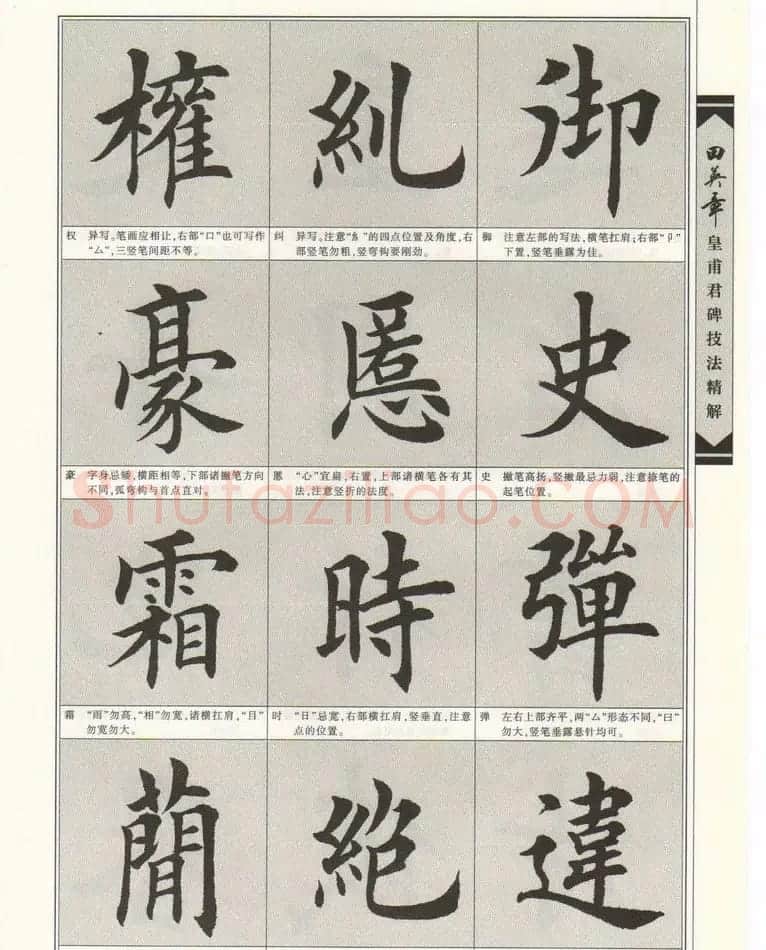 權 糺 御
权 异写。笔画应相让,右部“口”也可写作“厶”,三竖笔间距不等。
纠 异写。注意“糹”的四点位置及角度,右部竖笔勿粗,竖弯钩要刚劲。
御 注意左部的写法,横笔扛肩;右部“卩”下置,竖笔垂露为佳。
豪 慝 史
豪 字身忌矮,横距相等,下部诸撇笔方向不同,弧弯钩与首点直对。
慝 “心”宜扁,右置,上部诸横笔各有其法,注意竖折的法度。
史 撇笔高扬,竖撇最忌力弱,注意捺笔的起笔位置。
Shufaziliao.COM
霜 時 彈
霜 “雨”勿高,“相”勿宽,诸横扛肩,“目”勿宽勿大。
时 “日”忌宽,右部横扛肩,竖垂直,注意点的位置。
弹 左右上部齐平,两“厶”形态不同,“曰”勿大,竖笔垂露悬针均可。
蕳 絶 違
田英章
皇甫君碑技法精解